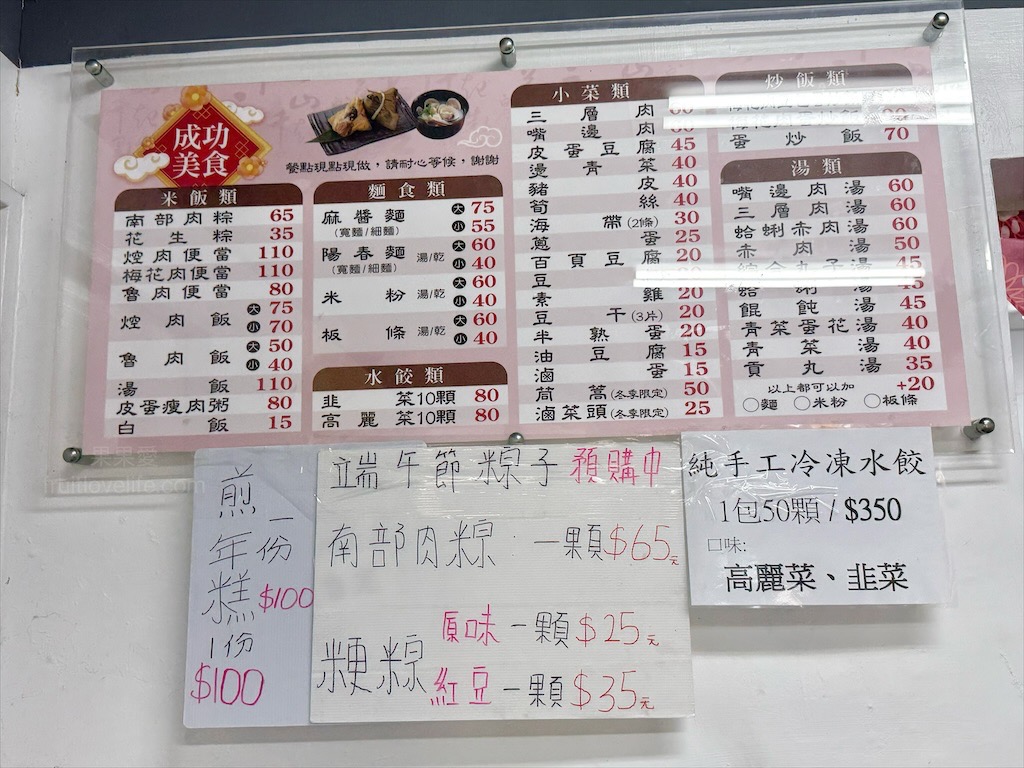 成功
美食
餐點現點現做,請耐心等侯,謝謝
米飯類
南部肉粽 65
花生粽 35
焢肉便當 110
梅花肉便當 110
魯肉便當 80
焢肉飯 大 75
小 70
魯肉飯 大 50
小 40
湯飯 110
皮蛋瘦肉粥 80
白飯 15
麵食類
麻醬麵 大 75
(寬麵/細麵) 小 55
陽春麵 湯/乾 大 60
(寬麵/細麵) 小 40
米粉 湯/乾 大 60
小 40
板條 湯/乾 大 60
小 40
水餃類
韭菜10顆 80
高麗菜10顆 80
小菜類
三層肉
嘴邊肉
皮蛋豆腐 45
燙青菜 40
豬皮 40
筍絲 40
海帶(2條) 30
蔥蛋 25
百頁豆腐 20
豆
素雞 20
豆干(3片) 20
半熟蛋 20
油豆腐 15
滷蛋 15
茼萵(冬季限定) 50
滷菜頭(冬季限定) 25
炒飯類
蛋炒飯 70
湯類
嘴邊肉湯 60
三層肉湯 60
蛤蜊赤肉湯 60
赤肉湯 50
綜合丸子湯 45
蛤蜊湯 45
餛飩湯 45
青菜蛋花湯 40
青菜湯 40
貢丸湯 35
以上都可以加 +20
○麵 ○米粉 ○板條
果果愛
fruitlovelife.com
煎年糕
一份
$100
1份
$100
端午節粽子 預購中
南部肉粽: 一顆$65元
粳粽 原味 一顆$25元
紅豆 一顆$35元
純手工冷凍水餃
1包50顆/$350
口味:
高麗菜、韭菜